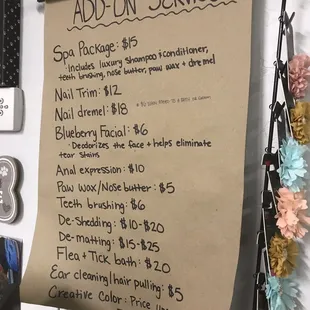 ADD-ON SERVICES
Spa Package: $15
*Includes luxury shampoo + conditioner,
teeth brushing, nose butter, paw wax + dremel
Nail Trim: $12
Nail dremel: $18
Blueberry Facial: $6
*Deodorizes the face + helps eliminate
tear stains
Anal expression: $10
Paw wax/Nose butter: $5
Teeth brushing: $6
De-Shedding: $10-$20
De-matting: $15-$25
Flea + Tick bath: $20
Ear cleaning/hair pulling: $5
Creative Color: Price